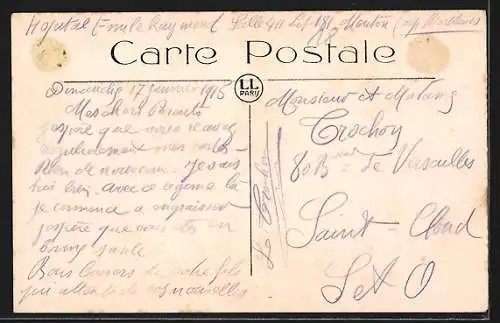 Hopital Emile Raymond Salle 411 Lit 181 Menton (Alp Maritimes
Carte Postale
LL
PARIS
Dimanche 17 janvier 1915
Mes chers Parents
J'espère que vous recevez
regulierement mes
Rien de nouveau. Je suis
très bien. Avec ce regime la
je commence a engraisser
j'espère que vous etes en
bonne santé
Bons baisers de votre fils
qui attend de vos nouvelles
Monsieur et Madame
Trochon
80 Bis de Versailles
Saint-Cloud
S et O